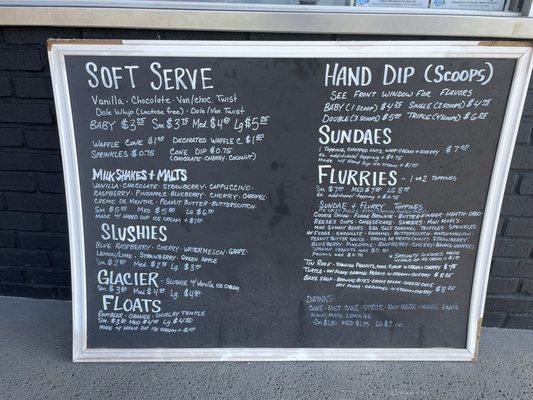 SOFT SERVE
Vanilla · Chocolate · Van/choc. Twist
Dole Whip (lactose free) · Dole/Van. Twist
BABY $3.25 Sm $3.75 Med. $4.50 Lg $5.25
WAFFLE CONE $1 DECORATED WAFFLE C. $1.50
SPRINKLES $0.75 CONE DIP $0.75
(CHOCOLATE · CHERRY · COCONUT)
MILKSHAKES + MALTS
VANILLA · CHOCOLATE · STRAWBERRY · CAPPUCCINO ·
RASPBERRY · PINEAPPLE · BLUEBERRY · CHERRY · CARAMEL
CREME DE MENTHE · PEANUT BUTTER · BUTTERSCOTCH
Sm $5.00 MED $5.50 LG $6.00
MADE W/ HARD DIP ICE CREAM + $1.00
SLUSHIES
BLUE RASPBERRY · CHERRY · WATERMELON · GRAPE ·
LEMON/LIME · STRAWBERRY · GREEN APPLE
Sm $2.50 Med $2.75 Lg. $3.00
GLACIER - SLUSHIE W/ VANILLA ICE CREAM
Sm $3.50 Med. $4.00 Lg. $4.50
FLOATS
ROOTBEER · ORANGE · SHIRLEY TEMPLE
MADE W/ HARD DIP ICE CREAM + $1.00
HAND DIP (SCOOPS)
SEE FRONT WINDOW FOR FLAVORS
BABY (1 SCOOP) $4.25 SINGLE (2 SCOOPS) $4.75
DOUBLE (3 SCOOPS) $5.50 TRIPLE (4 SCOOPS) $6.25
SUNDAES
1 TOPPING, CHOPPED NUTS, WHIP CREAM + CHERRY $7.00
ea. additional topping + $0.75
MADE W/ HARD DIP ICE CREAM + $1.00
FLURRIES - 1 OR 2 TOPPINGS
Sm $7.00 MED $7.50 LG 8.00
ea. additional topping + 0.75
SUNDAE + FLURRY TOPPINGS
COOKIE DOUGH · FUDGE BROWNIE · BUTTERFINGER · HEATH · OREO
REESES CUPS · CHEESECAKE · SNICKERS · MINI M+M'S ·
MINI GUMMY BEARS · SEA SALT CARAMEL TRUFFLES · SPRINKLES
HOT FUDGE · CHOCOLATE · CARAMEL · BUTTERSCOTCH · MARSHMALLOW ·
PEANUT BUTTER SAUCE · CREME DE MENTHE · STRAWBERRY ·
BLUEBERRY · PINEAPPLE · RASPBERRY · CHERRY
SPANISH PEANUTS
PECANS $0.50
* SPECIALTY SUNDAES MADE
W/ HARD DIP ICE CREAM + $1.00
TIN ROOF - SPANISH PEANUTS, CHOC SYRUP W/ CREAM + CHERRY
TURTLE - HOT FUDGE · CARAMEL · PECANS W/ CREAM + CHERRY $8.25
BAKE SHOP - BROWNIE BITES · COOKIE DOUGH · CHEESECAKE
HOT FUDGE · CARAMEL W/ CREAM + CHERRY $8.25
DRINKS
COKE · DIET COKE · SPRITE · ROOT BEER · ORANGE FANTA
HOMEMADE LEMONADE
Sm $1.50 MED $1.75 LG $2.00